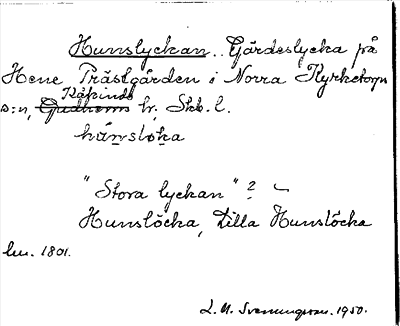 Hunslyckan. Gärdeslycka på
Hene Prästgården i Norra Kyrketorps
Kåkinds
s:n, Gudhems hr, Skb. l.
hä̱nslo̱ka
"Stora lyckan" ?
Hunslöcka, Lilla Hunslöcka
lm. 1801.
L. M. Svenungsson. 1950.